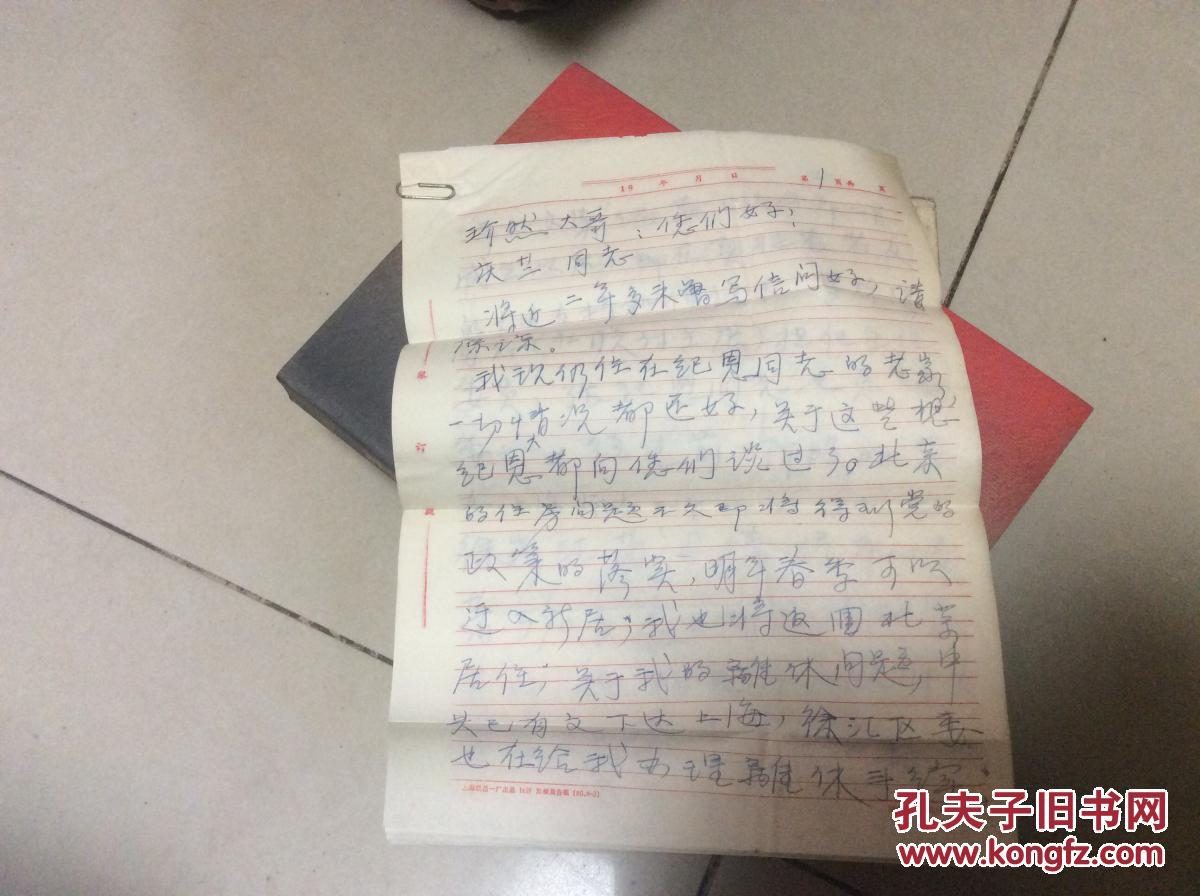 19 年 月 日 第1页共 页
然大哥：您们好！
庆兰同志
将近二年多未曾写信问好，请
谅之谅。
我现仍住在纪恩同志的老家，
一切情况都还好，关于这些想
纪恩都向您们谈过了。北京
的住房问题不久即将得到党的
政策的落实，明年春季可以
迁入新居，我也将返回北京
居住，关于我的離休问题，中
央已有文下达上海，徐汇区委
也在给我办理離休手续
装
订
线
孔夫子旧书网
www.kongfz.com